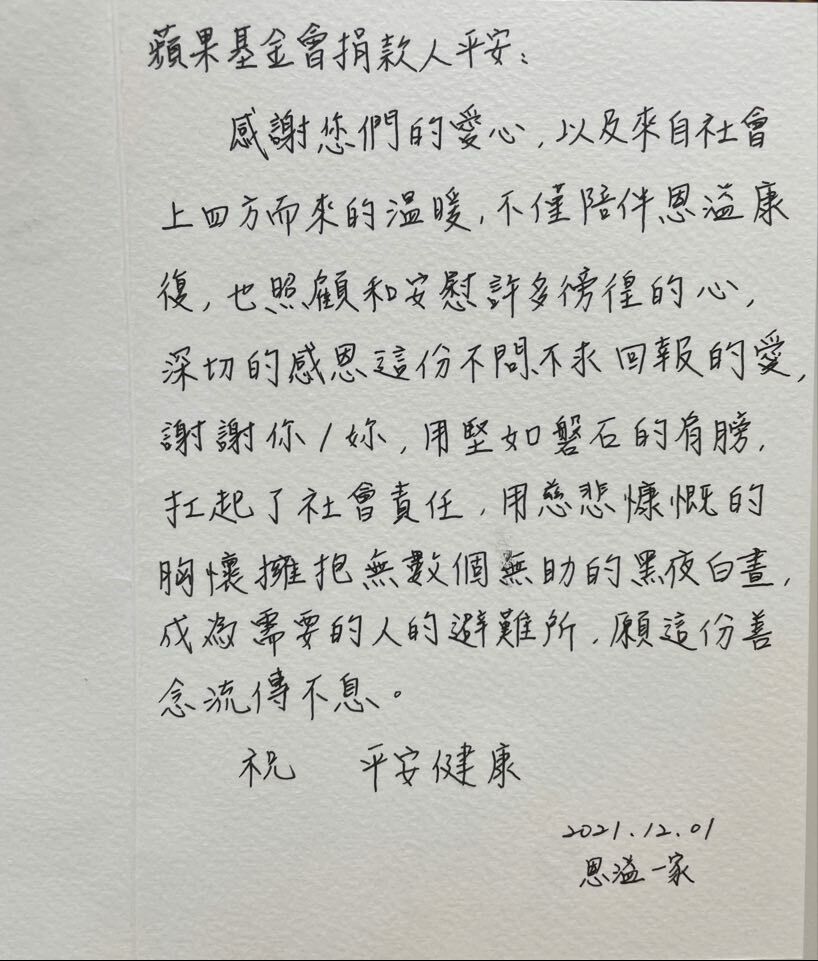 蘋果基金會捐款人平安：
感謝您們的愛心，以及來自社會
上四方而來的溫暖，不僅陪伴恩溢康
復，也照顧和安慰許多徬徨的心，
深切的感恩這份不問不求回報的愛，
謝謝你/妳，用堅如磐石的肩膀，
扛起了社會責任，用慈悲慷慨的
胸懷擁抱無數個無助的黑夜白晝，
成為需要的人的避難所，願這份善
念流傳不息。
祝 平安健康
2021.12.01
恩溢一家